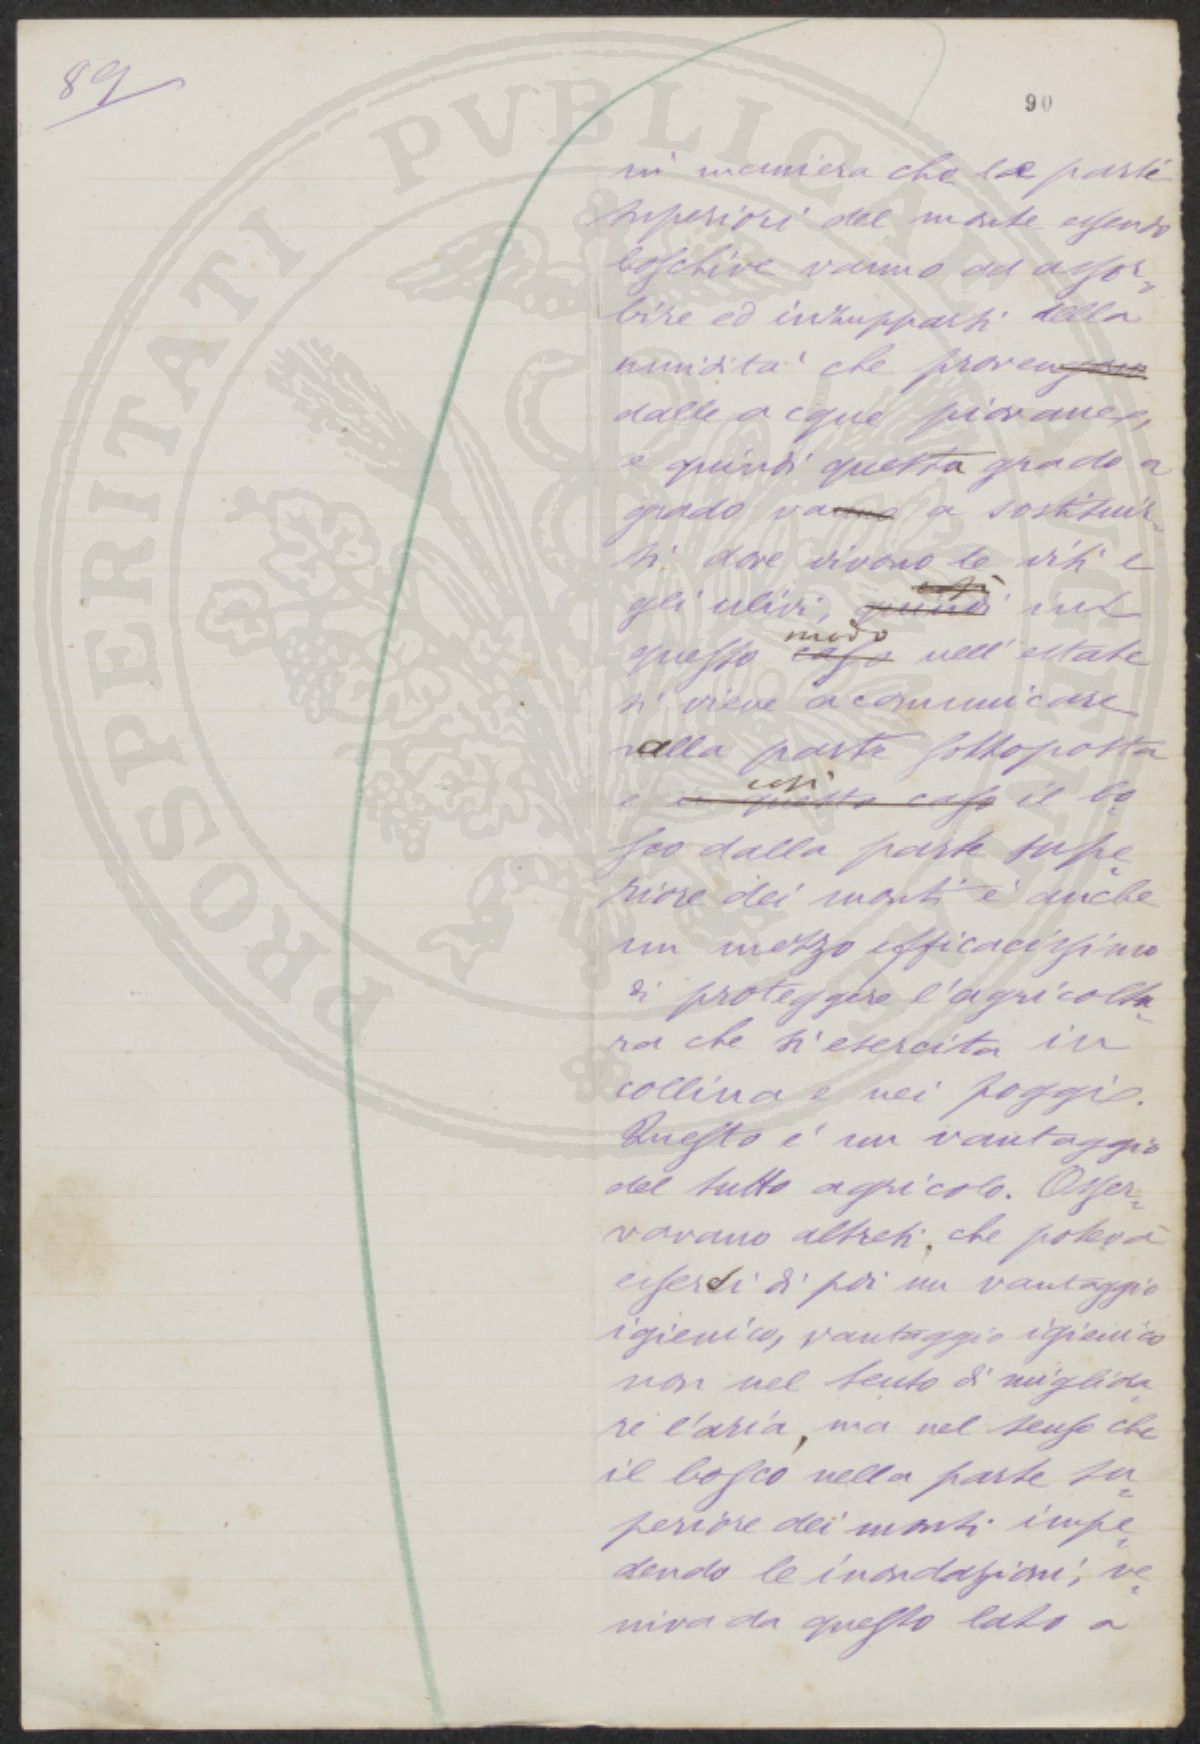 89
90
in maniera che le parti
superiori del monte essendo
boschive vanno ad assor-
bire ed inzupparsi della
umidità che proven̶g̶o̶n̶o̶
dalle acque piovane,
e quindi questa grado a
grado va̶n̶n̶o̶ a sostituir-
si dove vivono le viti e
gli ulivi, q̶u̶i̶n̶d̶i̶ c̶o̶s̶ì̶ in
questo c̶a̶s̶o̶ modo nell'estate
si viene a comunicare
alla parte sottoposta
e i̶n̶ q̶u̶e̶s̶t̶o̶ c̶a̶s̶o̶ così il bo-
sco dalla parte supe-
riore dei monti è anche
un mezzo efficacissimo
di proteggere l'agricoltu-
ra che si esercita in
collina e nei poggi.
Questo è un vantaggio
del tutto agricolo. Osser-
vavano altresì, che poteva
esserci di poi un vantaggio
igienico, vantaggio igienico
non nel senso di migliora-
re l'aria, ma nel senso che
il bosco nella parte su-
periore dei monti impe-
dendo le inondazioni, ve-
niva da questo lato a
PROSPERITATI PVBLICAE